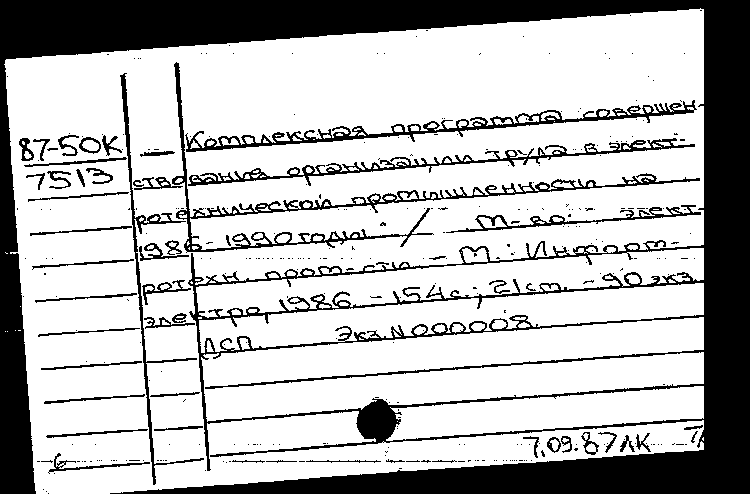 87-50К — Комплексная программа совершен-
7513 ствования организации труда в элект-
ротехнической промышленности на
1986-1990 годы. / М-во элект-
ротехн. пром-сти. - М.: Информ-
электро, 1986. - 154с.; 21см. - 90 экз
ДСП. Экз.N000008.
7.09.87ЛК
6